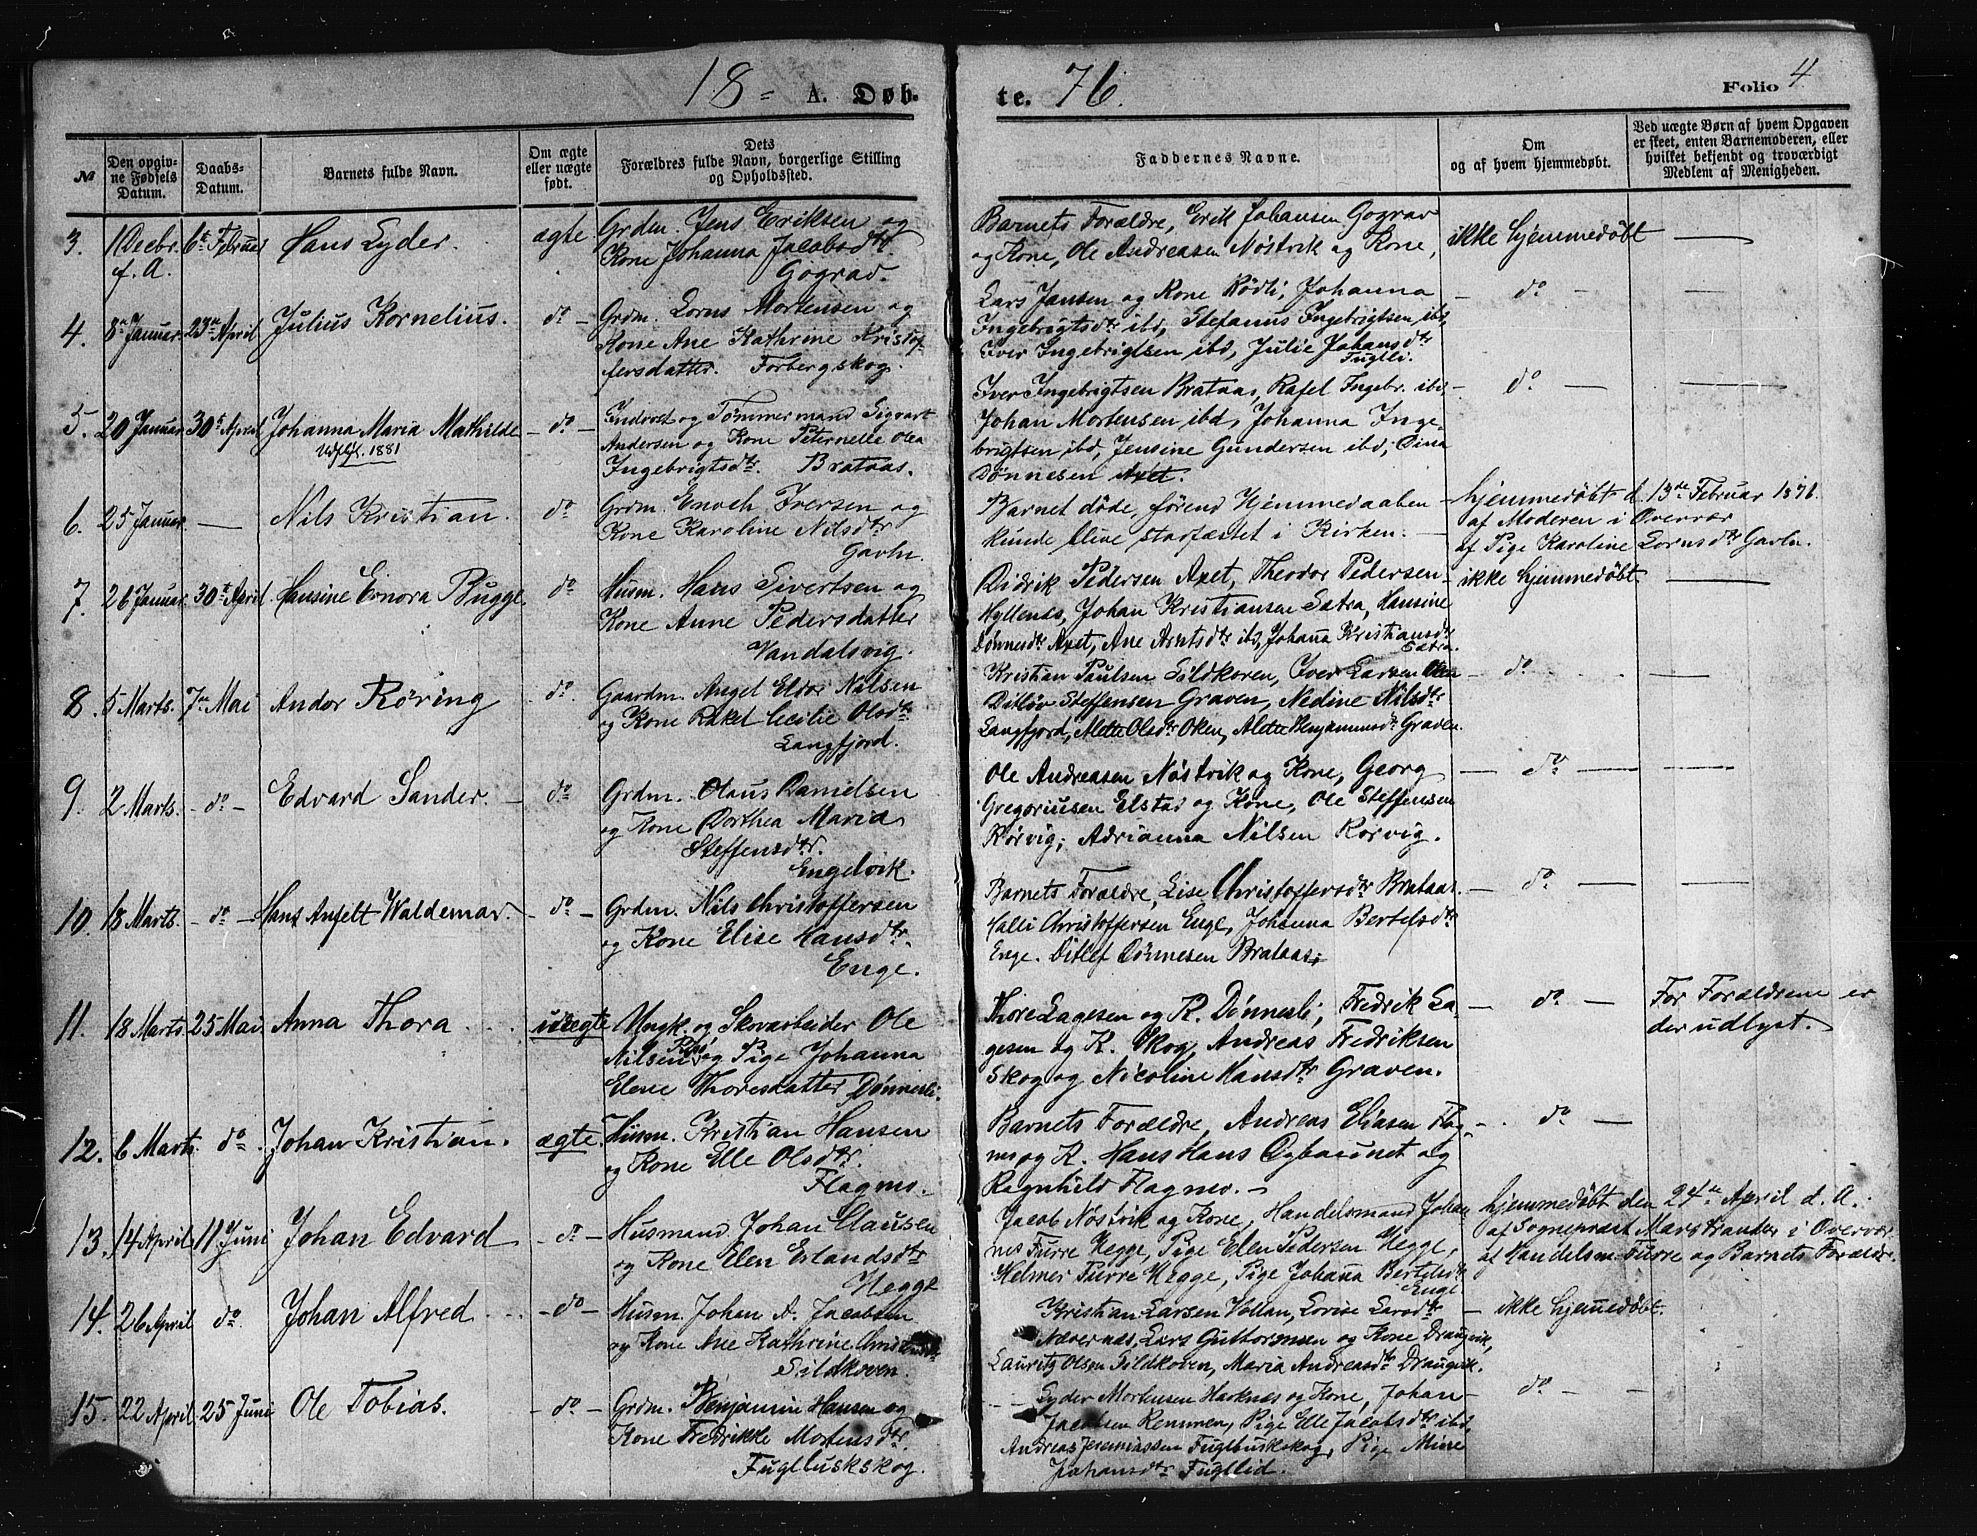 18 - A. Døb-
No
Den opgiv-
ne Fødsels
Datum.
Daabs-
Datum.
Barnets fulde Navn.
Om ægte
eller uægte
født.
Dets
Forældres fulde Navn, borgerlige Stilling
og Opholdssted.
3. 1 Decbr. 6te Februar Hans Eyder. ægte Grdm. Jens Eriksen og
f. A. Kone Johanna Jacobsdtr.
Gograv.
4. 8de Januar 23de April Julius Kornelius. do Grdm. Lorns Mortensen og
Kone Ane Kathrine Kristof-
fersdatter. Forbergskog.
5. 20 Januar 30te April Johanna Maria Mathilde do Inderst og Tømmermand Sigvart
1881 Andersen og Kone Peternelle Olea
Ingebrigtsdtr. Brataas.
6. 25 Januar — Nils Kristian. do Grdm. Enoch Iversen og
Kone Karoline Nilsdtr
Gavln.
7. 26 Januar 30te April Hansine Bugge do Husm. Hans Sivertsen og
Kone Anne Pedersdatter
Vandalsvig.
8. 5 Marts. 7de Mai Andor Røring do Gaardm. Angel Eldor Nilsen
og Kone Rakel Cecilie Olsdtr
Langfjord.
9. 2 Marts. - do - Edvard Sander. - do Grdm. Olaus Danielsen
og Kone Dorthea Maria
Steffensdtr.
Engelvik.
10. 18 Marts. - do - Hans Anfelt Waldemar. - do - Grdm. Nils Christoffersen
og Kone Elise Hansdtr.
Enge.
11. 18 Marts 25 Mai Anna Thora uægte Ungk. og Skovarbeider Ole
Nilsen og Pige Johanna
Elene Thoresdatter Dønnesli.
12. 6 Marts. do Johan Kristian. ægte. Husm. Kristian Hansen
og Kone Elle Olsdtr.
Flagmo.
13. 14 April 11 Juni Johan Edvard - do - Husmand Johan Clausen
og Kone Elen Erlandsdtr
Hegge
14. 26 April do Johan Alfred - do - Husm. Johan A. Jacobsen
og Kone Ane Kathrine
Sildkoven.
15. 22 April 25 Juni Ole Tobias. - do - Grdm. Benjamin Hansen og
Kone Fredrikke Mortensdtr.
Fuglbuskskog.
te. 76. Folio 4
Faddernes Navne.
Om
og af hvem hjemmedøbt.
Ved uægte Børn af hvem Opgaven
er skeet, enten Barnemoderen, eller
hvilket bekjendt og troværdigt
Medlem af Menigheden.
Barnets Forældre, Erik Johansen Gograv
og Kone, Ole Andreasen Nøstvik og Kone, ikke hjemmedøbt —
Lars Jansen og Kone Rødli, Johanna - do -
Ingebrigtsdtr ibd, Stefanus Ingebrigtsen ibd,
Iver Ingebrigtsen ibd, Julie Johansdtr
Fuglli.
Iver Ingebrigtsen Brataas, Rafel Ingebr. ibd, - do —
Johan Mortensen ibd, Johanna Inge-
brigtsen ibd, Jensine Gundersen ibd, Dina
Dønnesen Axet.
Barnet døde, førend Hjemmedaaben hjemmedøbt d. 13de Februar 1876.
kunde blive stadfæstet i Kirken. — af Moderen i Overvær
af Pige Karoline Lornsdtr Gavln.
Didrik Pedersen Axet, Theodor Pedersen ikke hjemmedøbt. —
Hyllenes, Johan Kristiansen Sætra, Hansine
Dønnesdtr Axet, Ane Arntsdtr ibd, Johana Kristiansdtr
Sætra.
Kristian Paulsen Sildkoven, Iver Larsen Oken - do
Ditlev Steffensen Graven, Nedine Nilsdtr
Langfjord, Alette Olsdtr Oken, Alette Benjaminsdtr Graven.
Ole Andreasen Nøstvik og Kone, Georg - do —
Gregoriusen Elstad og Kone, Ole Steffensen
Rørvig, Adrianna Nilsen Rørvig.
Barnets Forældre, Lise Christoffersdtr Brataas. - do —
Halli Christoffersen Enge, Johanna Bertelsdtr
Enge. Ditlef Dønnesen Brataas.
Thore Lagesen og K. Dønnesli, Fredrik La- - do — For Forældrene er
gesen og K. Skog, Andreas Fredriksen der udlyst.
Skog og Nicoline Hansdtr Graven.
Barnets Forældre, Andreas Eliasen Flag- - do —
mo og K. Hans Hans Dybaunet og
Ragnhild Flagmo. —
Jacob Nøstvik og Kone, Handelsmand Johan- hjemmedøbt den 24de April d. A.
nes Furre Hegge, Pige Elen Pedersen Hegge, af Sognepræst Marstrander i Overvær
Helmer Furre Hegge, Pige Johana Bertelsdtr af Handelsm. Furre og Barnets Forældre.
Enge
Kristian Larsen Vollan, Lovise Larsdtr - ikke hjemmedøbt.
Nævernes, Lars Guttormsen og Kone Draugvik,
Lauritz Olsen Sildkoven, Maria Andreasdtr Draugvik.
Eyder Mortensen Harknes og Kone, Johan - do —
Jacobsen Remmen, Pige Elle Jacobsdtr ibd,
Andreas Jeremiassen Fuglbuskskog, Pige Mine
Johansdtr Fugllid.